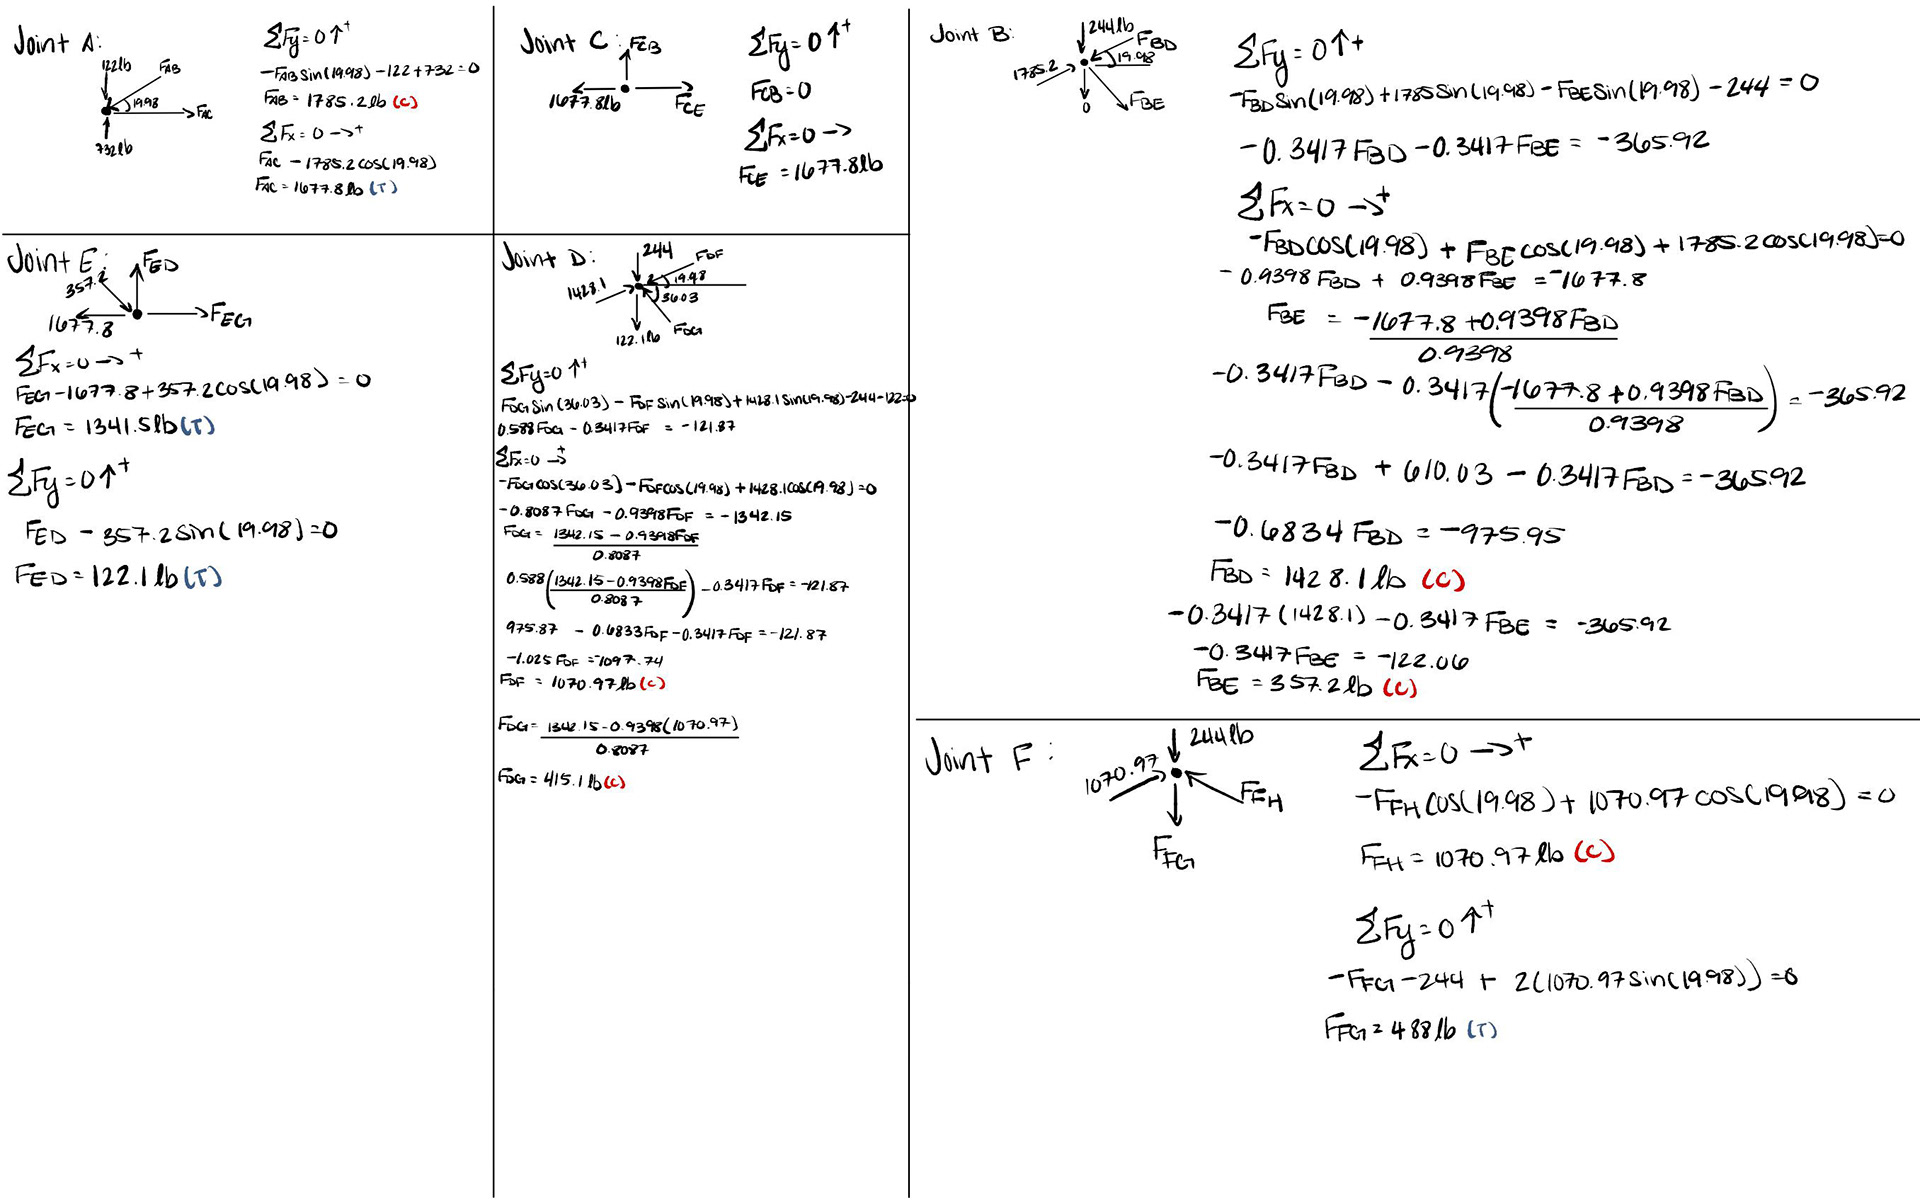 Joint A:
122lb
FAB
19.98
FAC
732lb
ΣFy=0↑+
-FAB sin(19.98) -122+732=0
FAB = 1785.2lb (C)
ΣFx=0 →+
FAC - 1785.2cos(19.98)
FAC = 1677.8lb (T)
Joint C:
FCB
1677.8lb
FCE
ΣFy=0↑+
FCB=0
ΣFx=0 →
FCE = 1677.8lb
Joint B:
244lb
FBD
19.98
1785.2
0
FBE
ΣFy=0↑+
-FBDsin(19.98)+1785sin(19.98)-FBEsin(19.98)-244=0
-0.3417FBD-0.3417FBE=-365.92
ΣFx=0 →+
-FBDcos(19.98)+FBEcos(19.98)+1785.2cos(19.98)=0
-0.9398FBD + 0.9398FBE = -1677.8
FBE = -1677.8+0.9398FBD
0.9398
-0.3417FBD - 0.3417(-1677.8+0.9398FBD) = -365.92
0.9398
-0.3417FBD + 610.03 - 0.3417FBD = -365.92
-0.6834FBD = -975.95
FBD = 1428.1lb (C)
-0.3417(1428.1) - 0.3417FBE = -365.92
-0.3417FBE = -122.06
FBE = 357.2lb (C)
Joint E:
FED
357.2
1677.8
FEG
ΣFx=0 →+
FEG-1677.8+357.2cos(19.98)=0
FEG = 1341.5lb(T)
ΣFy=0↑+
FED - 357.2sin(19.98)=0
FED=122.1lb(T)
Joint D:
244
FDF
19.98
1428.1
36.03
FDG
122.1lb
ΣFy=0↑+
FDGsin(36.03) - FDFsin(19.98)+1428.1sin(19.98)-244-122=0
0.588FDG - 0.3417FDF = -121.87
ΣFx=0 →+
-FDGcos(36.03)-FDFcos(19.98)+1428.1cos(19.98)=0
-0.8087FDG - 0.9398FDF = -1342.15
FDG = 1342.15 - 0.9398FDF
0.8087
0.588(1342.15-0.9398FDF) - 0.3417FDF = -121.87
0.8087
975.87 - 0.6833FDF-0.3417FDF = -121.87
-1.025FDF = -1097.74
FDF = 1070.97lb(C)
FDG = 1342.15-0.9398(1070.97)
0.8087
FDG = 415.1lb(C)
Joint F:
244lb
1070.97
FFH
FFG
ΣFx=0 →+
-FFHcos(19.98)+1070.97cos(19.98)=0
FFH = 1070.97lb (C)
ΣFy=0↑+
-FFG-244 + 2(1070.97sin(19.98))=0
FFG = 488lb (T)